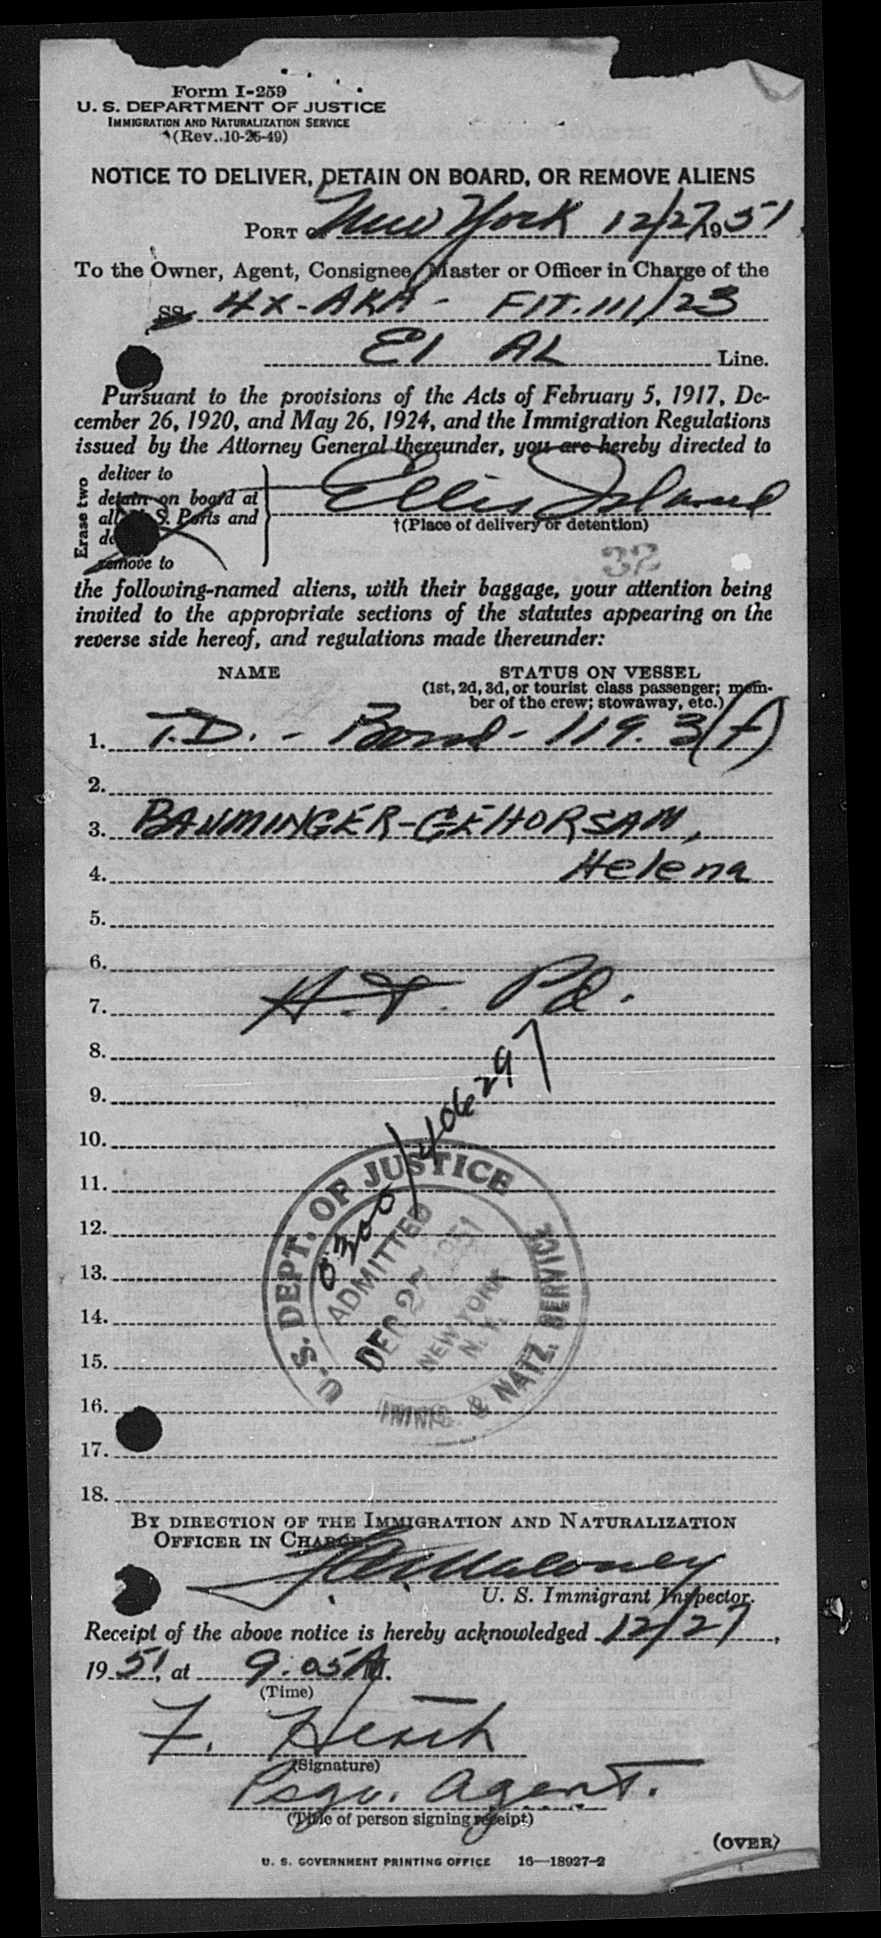 Form I-259
U. S. DEPARTMENT OF JUSTICE
IMMIGRATION AND NATURALIZATION SERVICE
(Rev. 10-26-49)
NOTICE TO DELIVER, DETAIN ON BOARD, OR REMOVE ALIENS
PORT of New York 12/27 1951
To the Owner, Agent, Consignee, Master or Officer in Charge of the
SS. 4X-AKA - FLT. 111/23
El AL Line.
Pursuant to the provisions of the Acts of February 5, 1917, De-
cember 26, 1920, and May 26, 1924, and the Immigration Regulations
issued by the Attorney General thereunder, you are hereby directed to
Erase two
deliver to
detain on board at
all U. S. Ports and
remove to
Ellis Island
†(Place of delivery or detention)
32
the following-named aliens, with their baggage, your attention being
invited to the appropriate sections of the statutes appearing on the
reverse side hereof, and regulations made thereunder:
NAME STATUS ON VESSEL
(1st, 2d, 3d, or tourist class passenger; mem-
ber of the crew; stowaway, etc.)
1. T.D. - Bond - 119.3(f)
2.
3. BAUMINGER-GEHORSAM,
4. Helena
5.
6.
7. H.T. Pd.
8.
9.
10.
11.
12.
13.
14.
15.
16.
17.
18.
0300/
U. S. DEPT. OF JUSTICE
ADMITTED
DEC 27 1951
NEW YORK
N. Y.
IMMIG. & NATZ. SERVICE
BY DIRECTION OF THE IMMIGRATION AND NATURALIZATION
OFFICER IN CHARGE.
Maloney
U. S. Immigrant Inspector.
Receipt of the above notice is hereby acknowledged 12/27,
1951, at 9:05 A M.
(Time)
F. Hersh
(Signature)
Psgr. Agent.
(Title of person signing receipt)
(OVER)
U. S. GOVERNMENT PRINTING OFFICE 16—18927-2